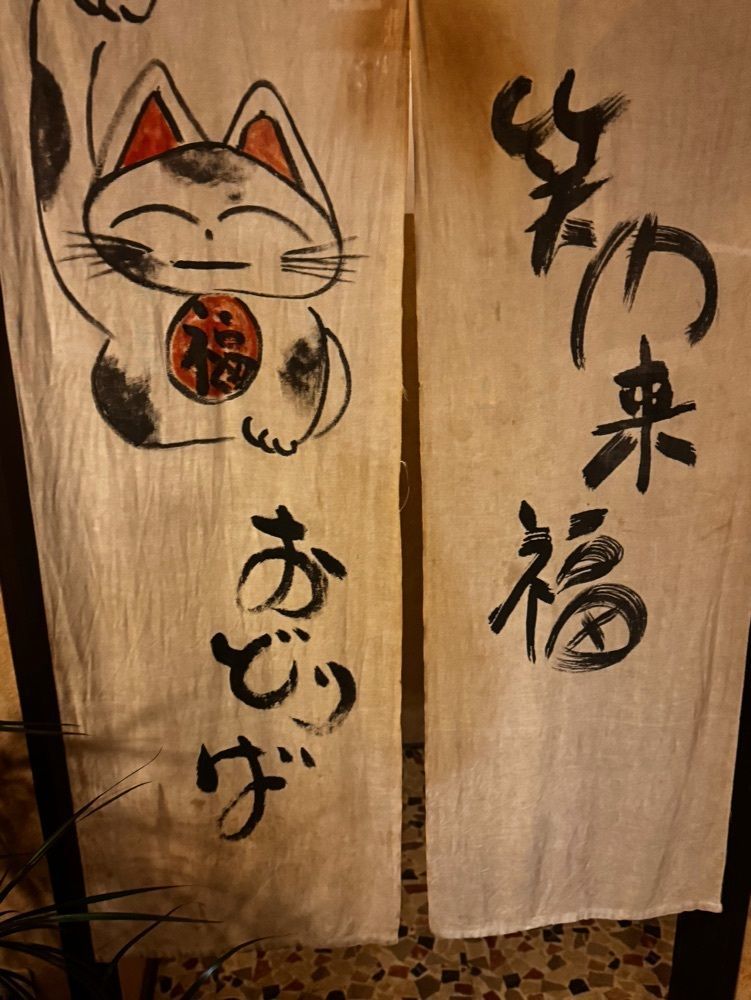 笑門来福
福
おどりば